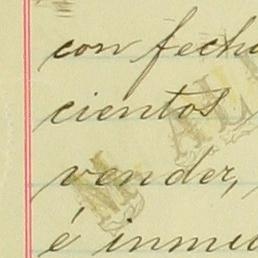 con fecha
cientos
vender,
é inme